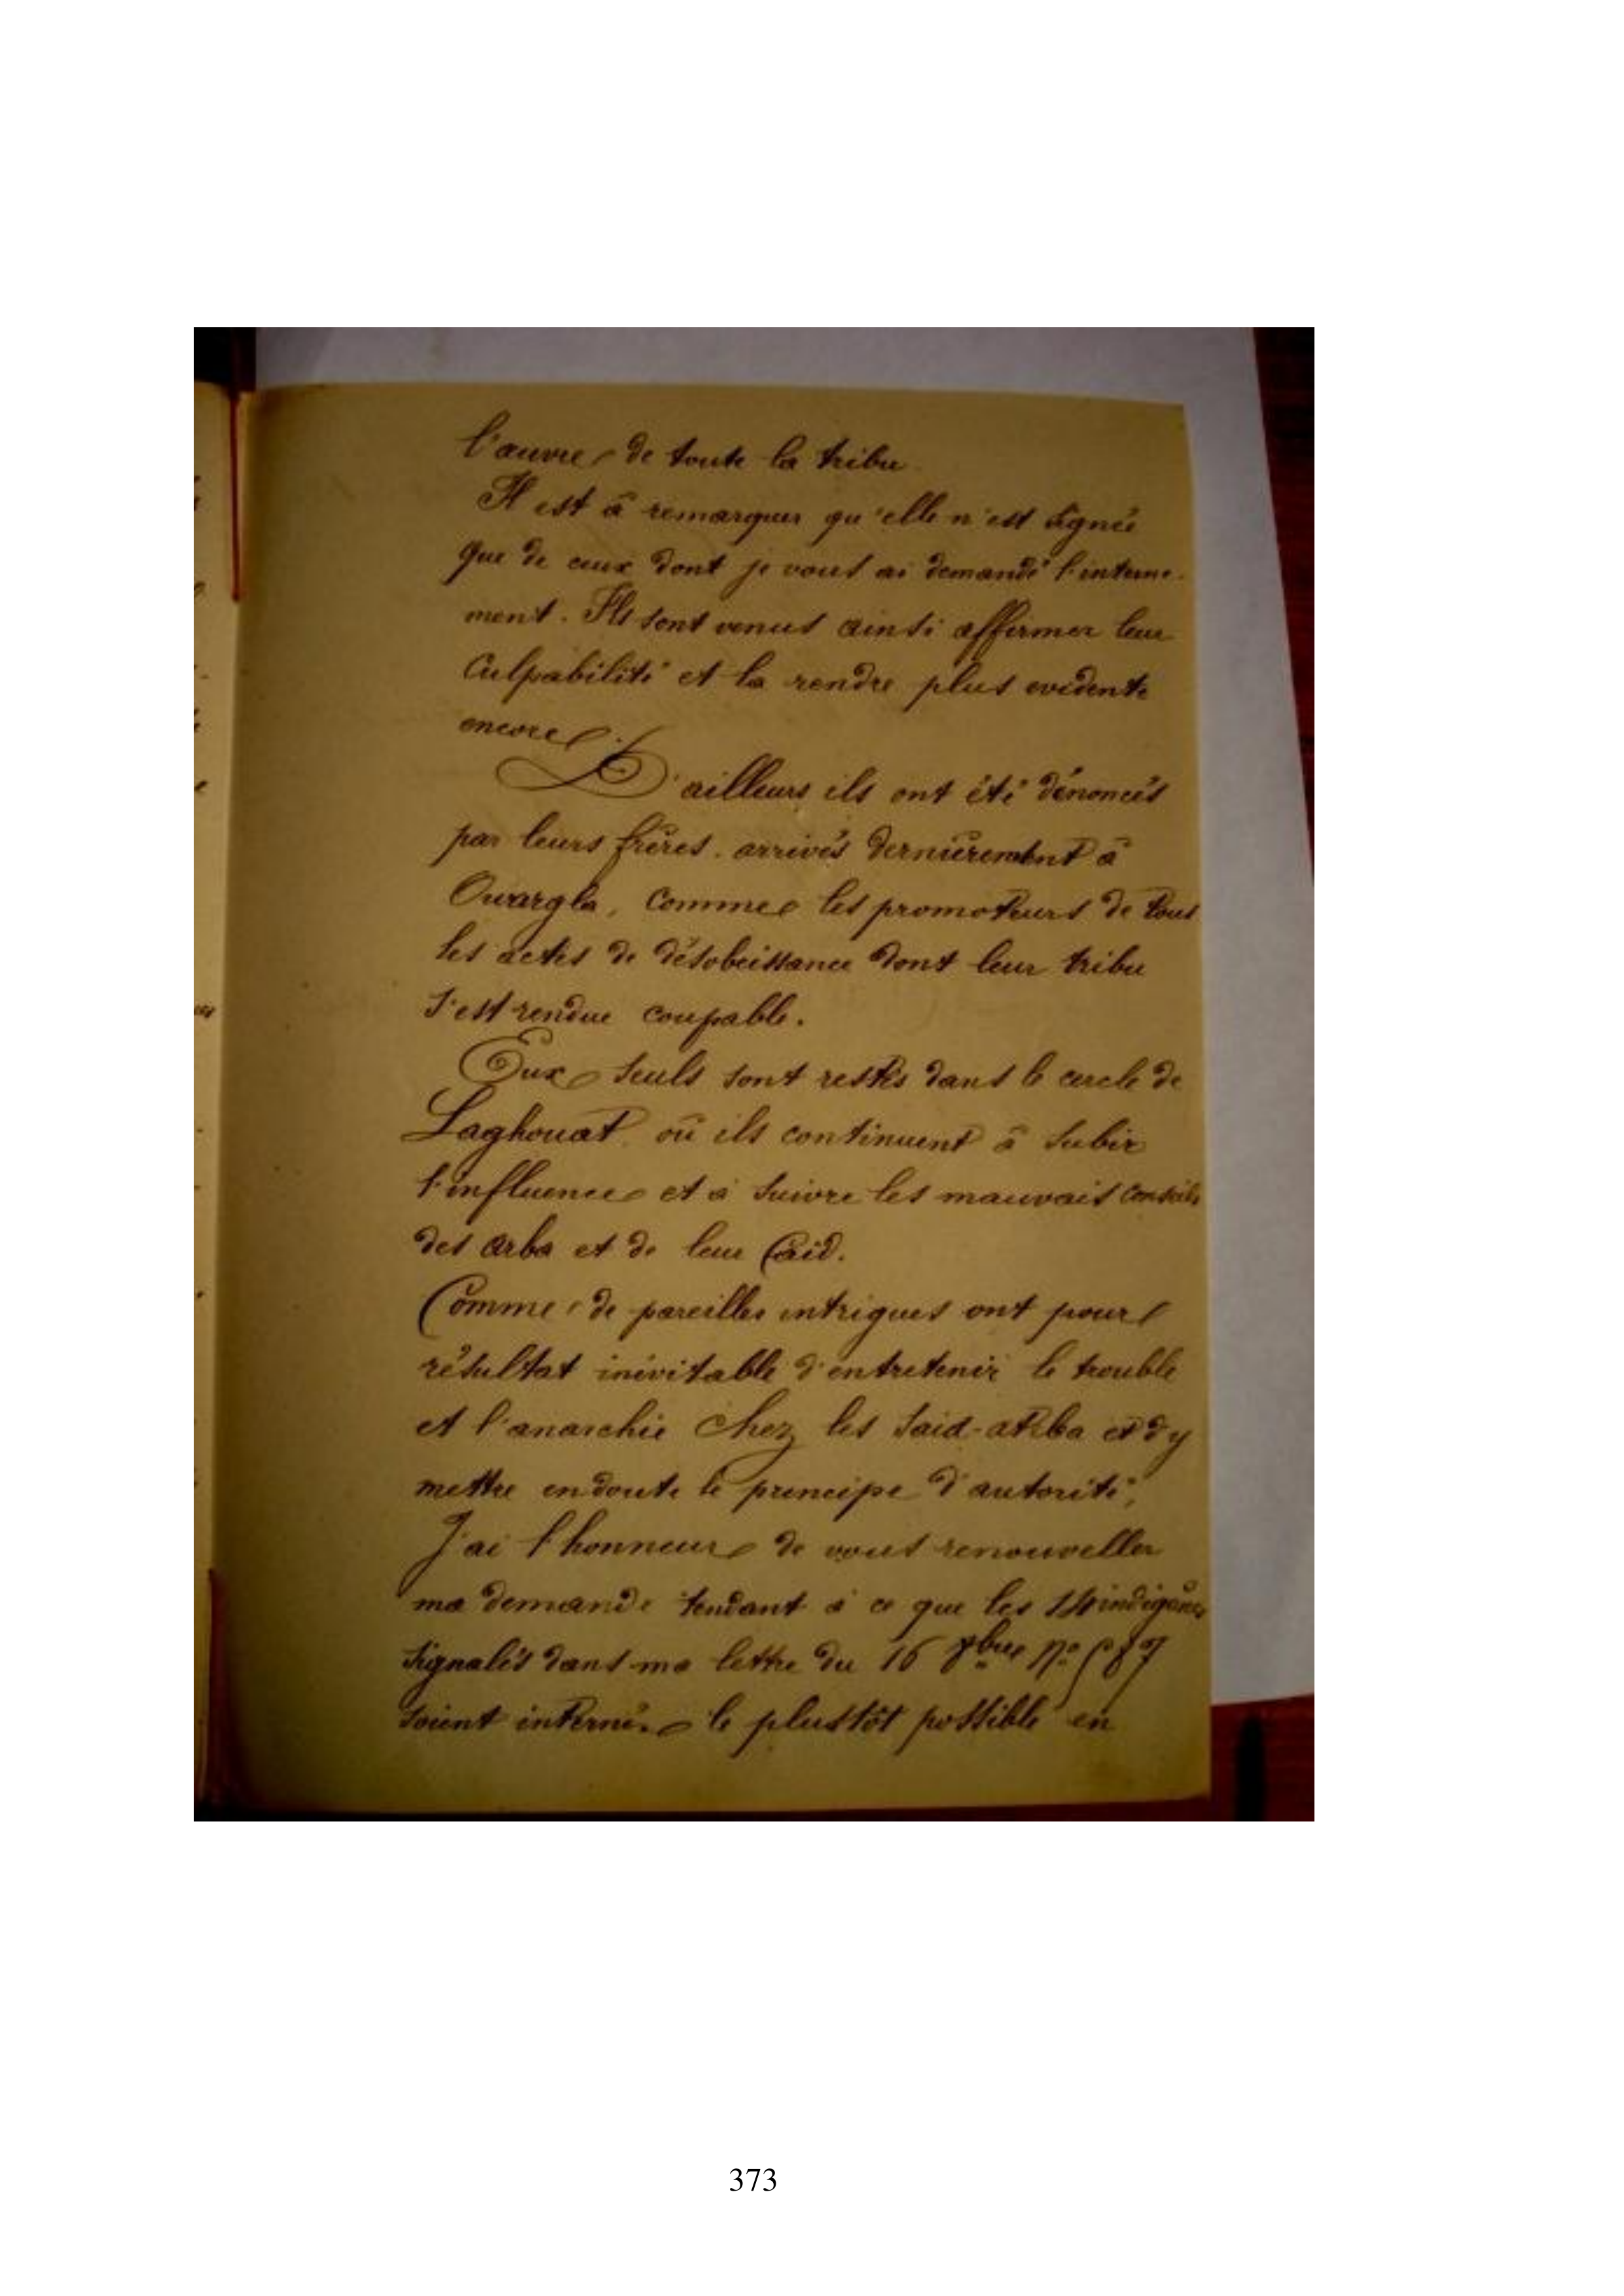 l'œuvre de toute la tribu
Il est à remarquer qu'elle n'est signée
que de ceux dont je vous ai demandé l'interne-
ment. Ils sont venus ainsi affirmer leur
culpabilité et la rendre plus evidente
encore.
D'ailleurs ils ont été dénoncés
par leurs frères arrivés dernièrement à
Ouargla, comme les promoteurs de tous
les actes de désobeissance dont leur tribu
s'est rendue coupable.
Eux seuls sont restés dans le cercle de
Laghouat où ils continuent à subir
l'influence et à suivre les mauvais conseils
des Arba et de leur Caïd.
Comme de pareilles intrigues ont pour
résultat inévitable d'entretenir le trouble
et l'anarchie chez les Saïd-atba et d'y
mettre en doute le principe d'autorité,
J'ai l'honneur de vous renouveller
ma demande tendant à ce que les 14 indigènes
signalés dans ma lettre du 16 bre No 587
soient internés le plustôt possible en
373